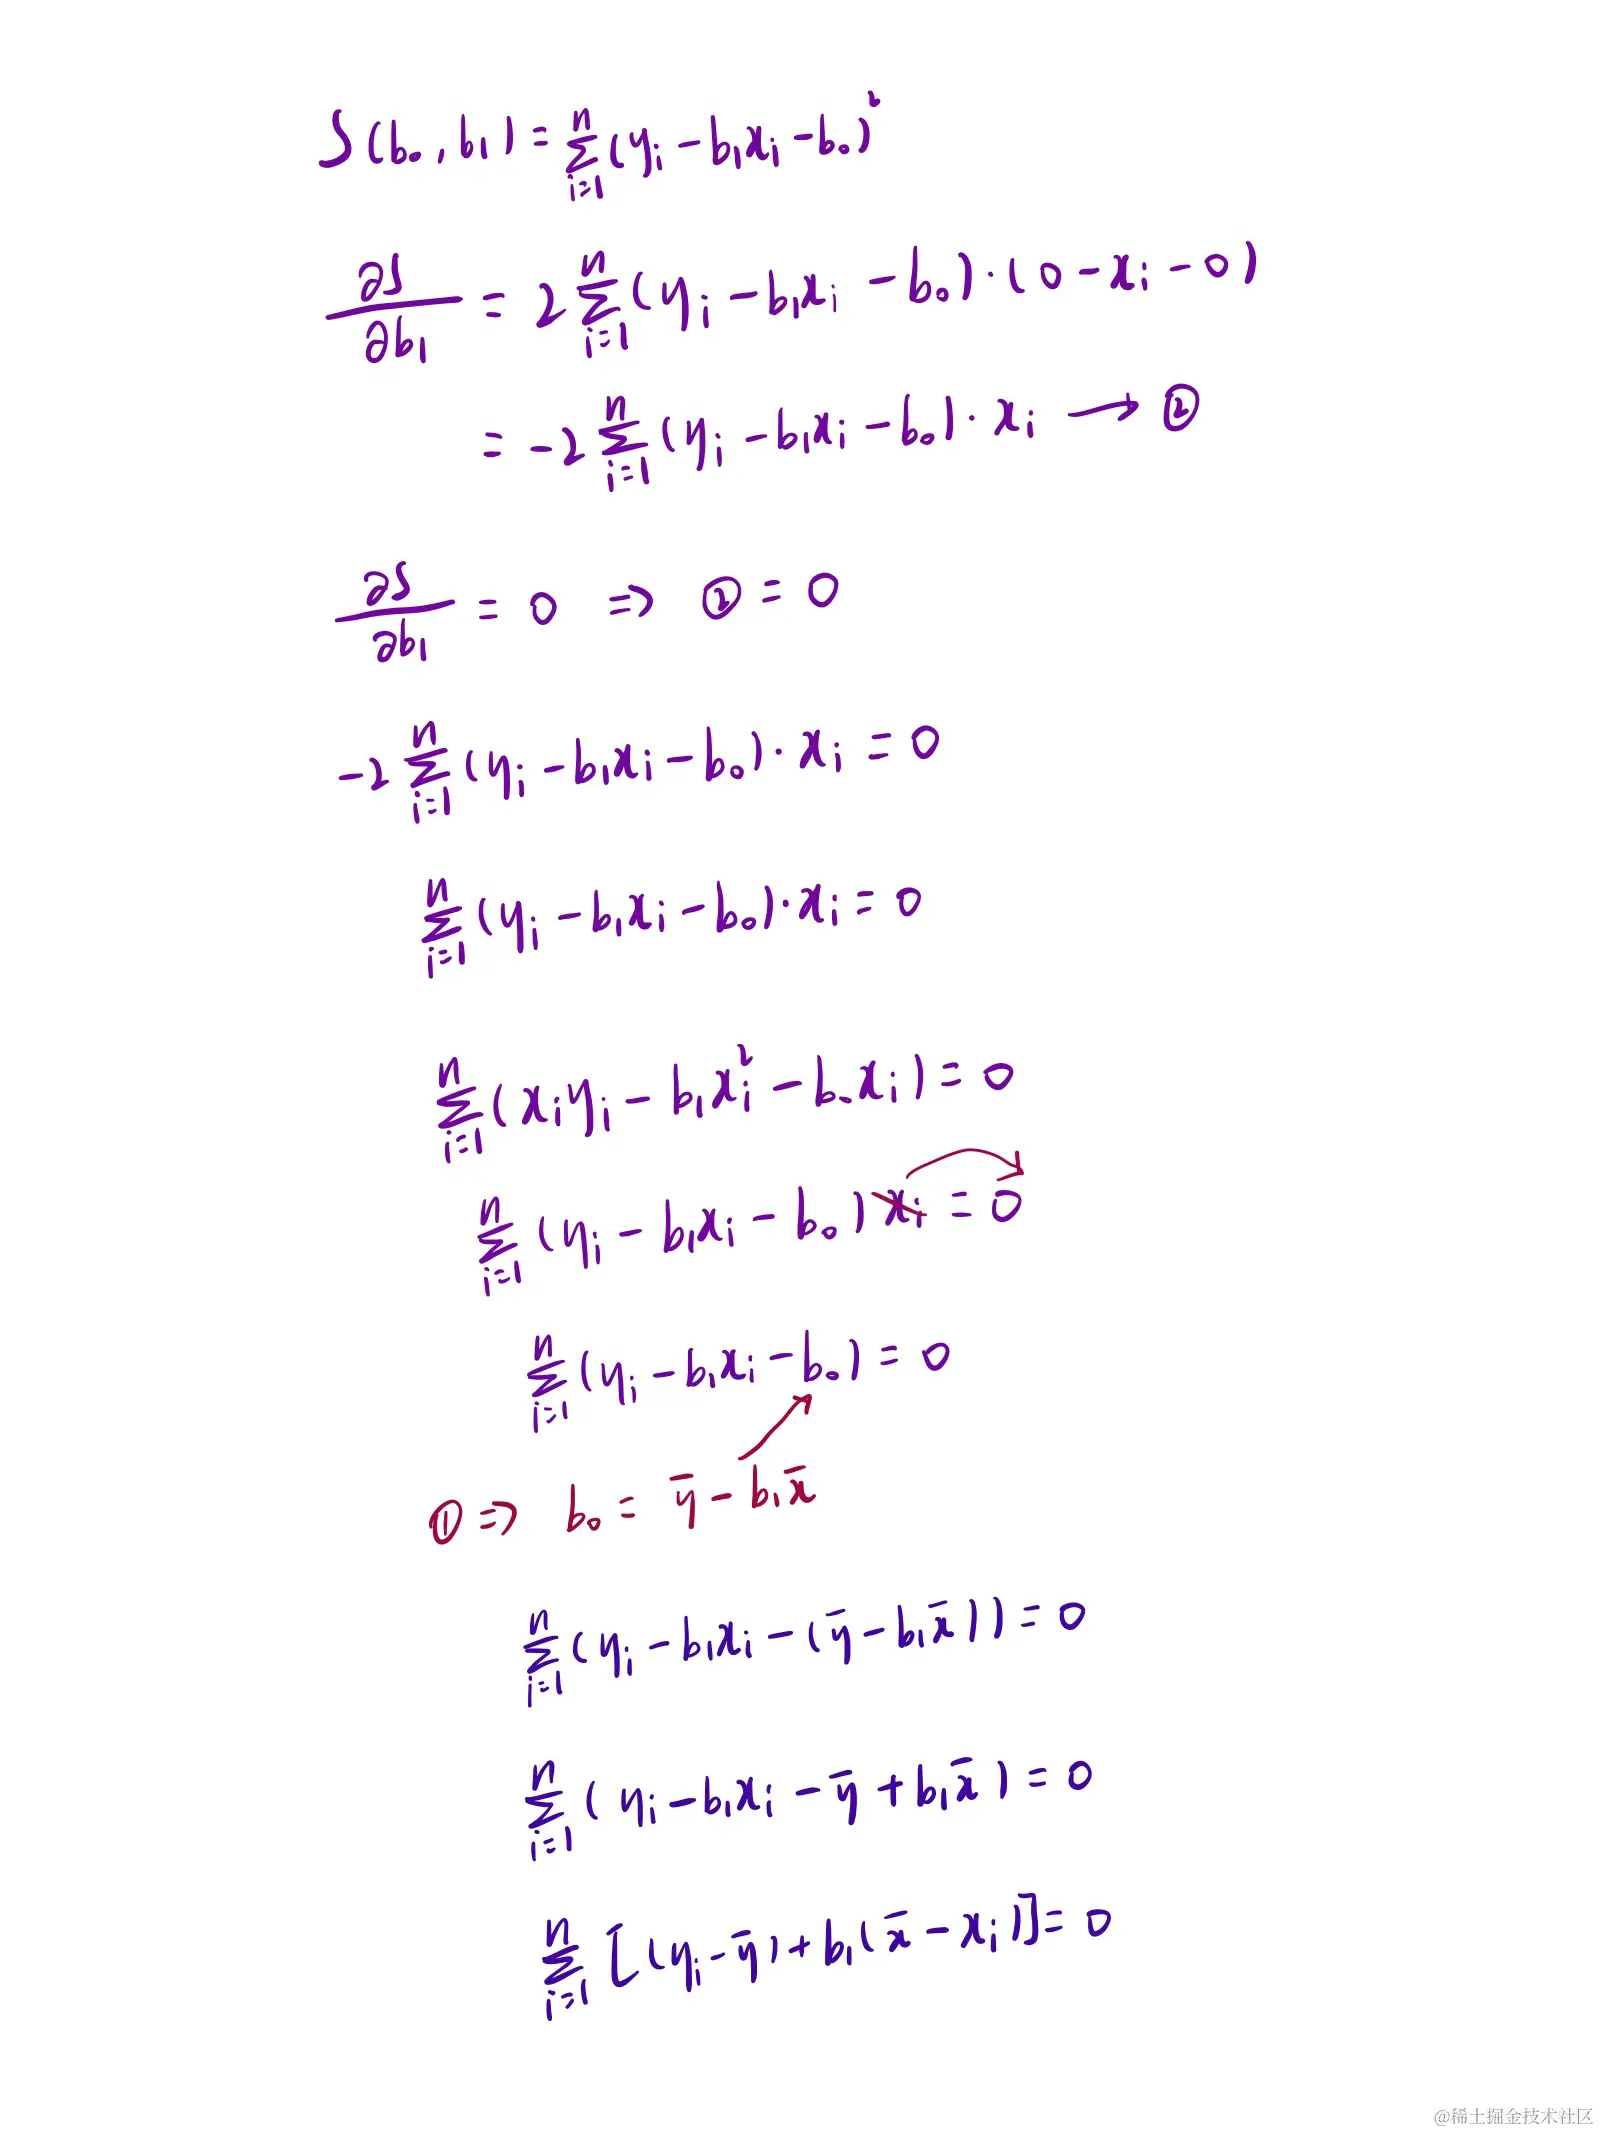 S(b₀, b₁) = ∑ⁿᵢ₌₁ (yᵢ - b₁xᵢ - b₀)²
∂S/∂b₁ = 2 ∑ⁿᵢ₌₁ (yᵢ - b₁xᵢ - b₀) · (0 - xᵢ - 0)
= -2 ∑ⁿᵢ₌₁ (yᵢ - b₁xᵢ - b₀) · xᵢ → ②
∂S/∂b₁ = 0 ⇒ ② = 0
-2 ∑ⁿᵢ₌₁ (yᵢ - b₁xᵢ - b₀) · xᵢ = 0
∑ⁿᵢ₌₁ (yᵢ - b₁xᵢ - b₀) · xᵢ = 0
∑ⁿᵢ₌₁ (xᵢyᵢ - b₁xᵢ² - b₀xᵢ) = 0
∑ⁿᵢ₌₁ (yᵢ - b₁xᵢ - b₀) xᵢ = 0
∑ⁿᵢ₌₁ (yᵢ - b₁xᵢ - b₀) = 0
① ⇒ b₀ = ȳ - b₁x̄
∑ⁿᵢ₌₁ (yᵢ - b₁xᵢ - (ȳ - b₁x̄)) = 0
∑ⁿᵢ₌₁ (yᵢ - b₁xᵢ - ȳ + b₁x̄) = 0
∑ⁿᵢ₌₁ [(yᵢ - ȳ) + b₁(x̄ - xᵢ)] = 0
@稀土掘金技术社区